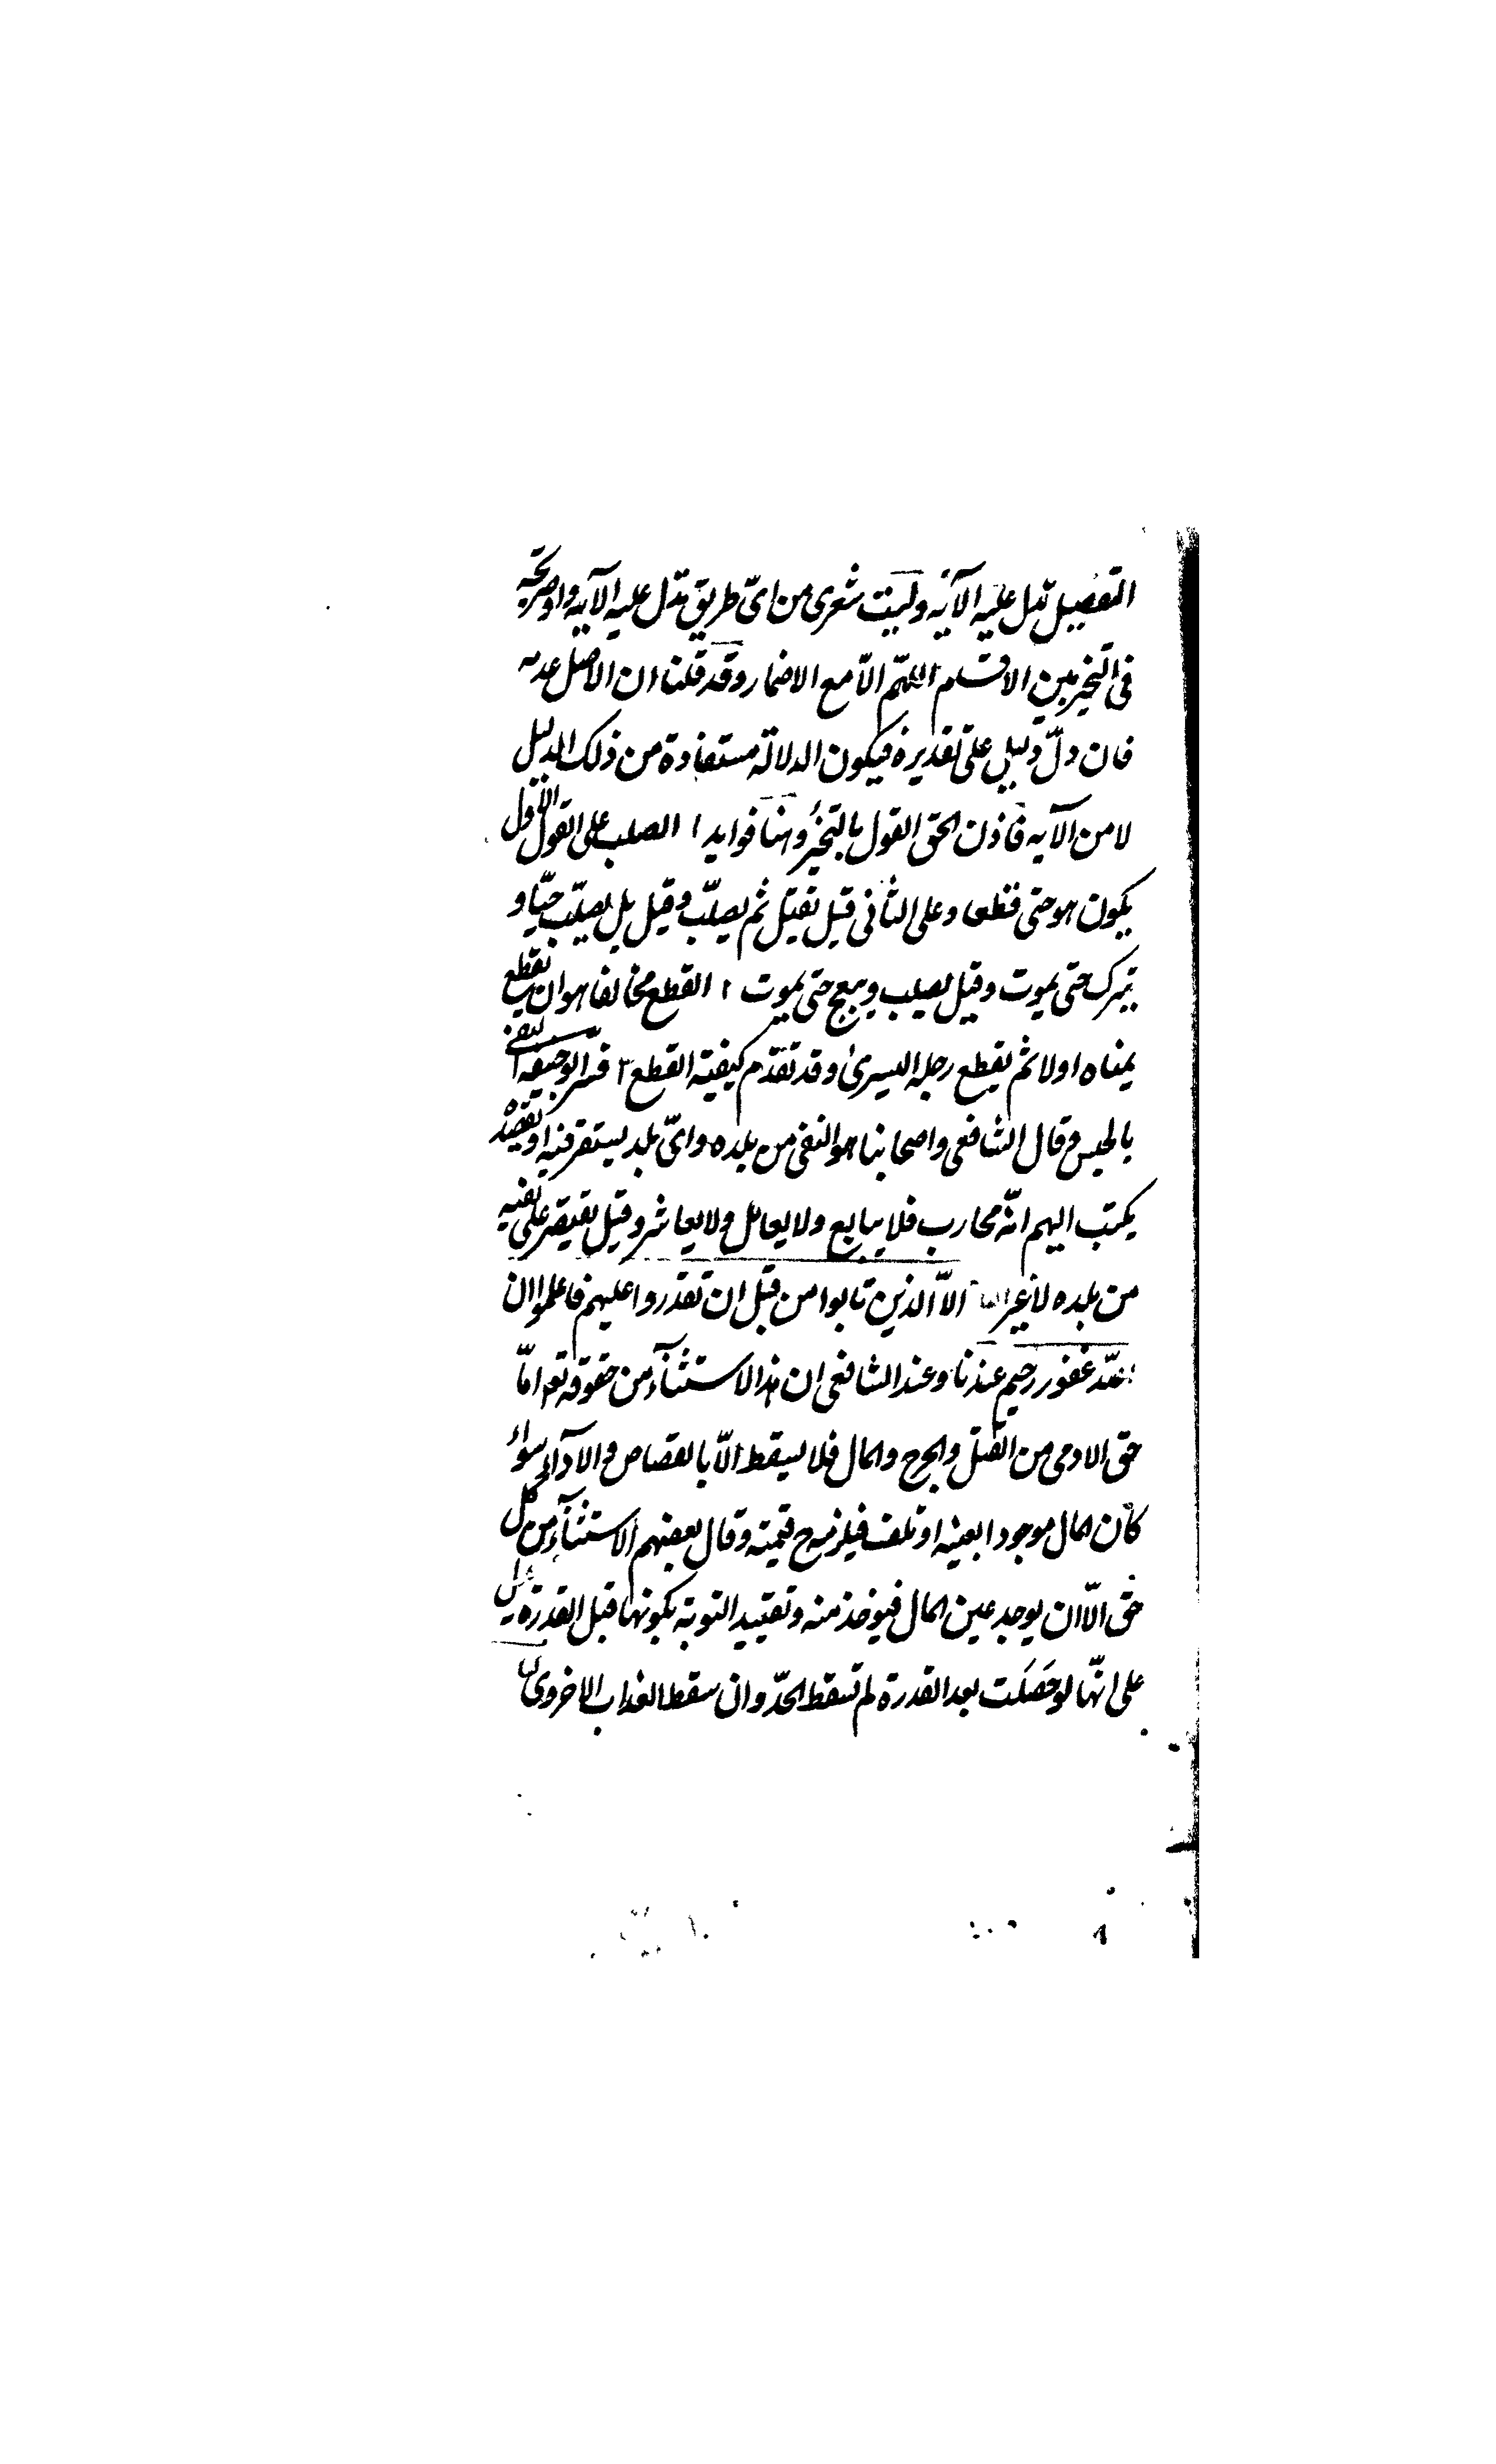 التفصيل تدل عليه الآية وليت شعرى من اىّ طريق تدّل عليه الآيه واو صريحة
فى التخير بين الاقسام اللهمّ الاّ مع الاضمار وقد قلنا ان الاصل عدمه
فان دلّ دليل على تقديره فيكون الدلالة مستفادة من ذلك الدليل
لا من الآيه فاذن الحق القول بالتخير وهنا فوايد ا الصلب على القول الاول
يكون هو حتى قطعا وعلى الثانى قيل يقتل ثم يصلّب وقيل بل يصلّب حيّا و
يترك حتى يموت وقيل يصلب ويبعج حتى يموت ٢ القطع مخالفا هو ان يقطع
يمناه اولا ثم يقطع رجله اليسرىٰ وقد تقدّم كيفية القطع ٣ فسّر ابو حنيفه النفى
بالحبس وقال الشافعى واصحابنا هو النفى من بلده واىّ بلد يستقر فيه او يقصده
يكتب اليهم انّه محارب فلا يبايع ولا يعامل ولا يعاشر وقيل يقتصر على نفيه
من بلده لا غير الاّ الذين تابوا من قبل ان تقدروا عليهم فاعلموا ان
الله غفور رحيم عندنا وعند الشافعى ان هذا الاستثنآء من حقوقه تعم امّا
حق الادمى من القتل والجرح والمال فلا يسقط الاّ بالقصاص والادآء سوآء
كان المال موجودا بعينه او تلف فيلزمه ح قيمته وقال بعضهم الاستثنآء من كل
حق الاّ ان يوجد عين المال فيوخذ منه وتقييد التوبة بكونها قبل القدرة يدل
على انّها لو حَصَلَت بعد القدرة لم تسقط الحدّ وان سقط العذاب الاخروى